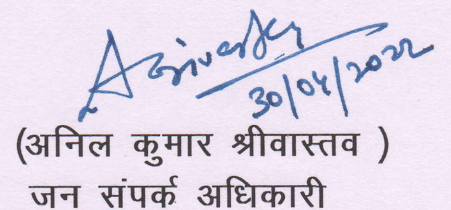 A Srivastav
30/04/2022
(अनिल कुमार श्रीवास्तव )
जन संपर्क अधिकारी